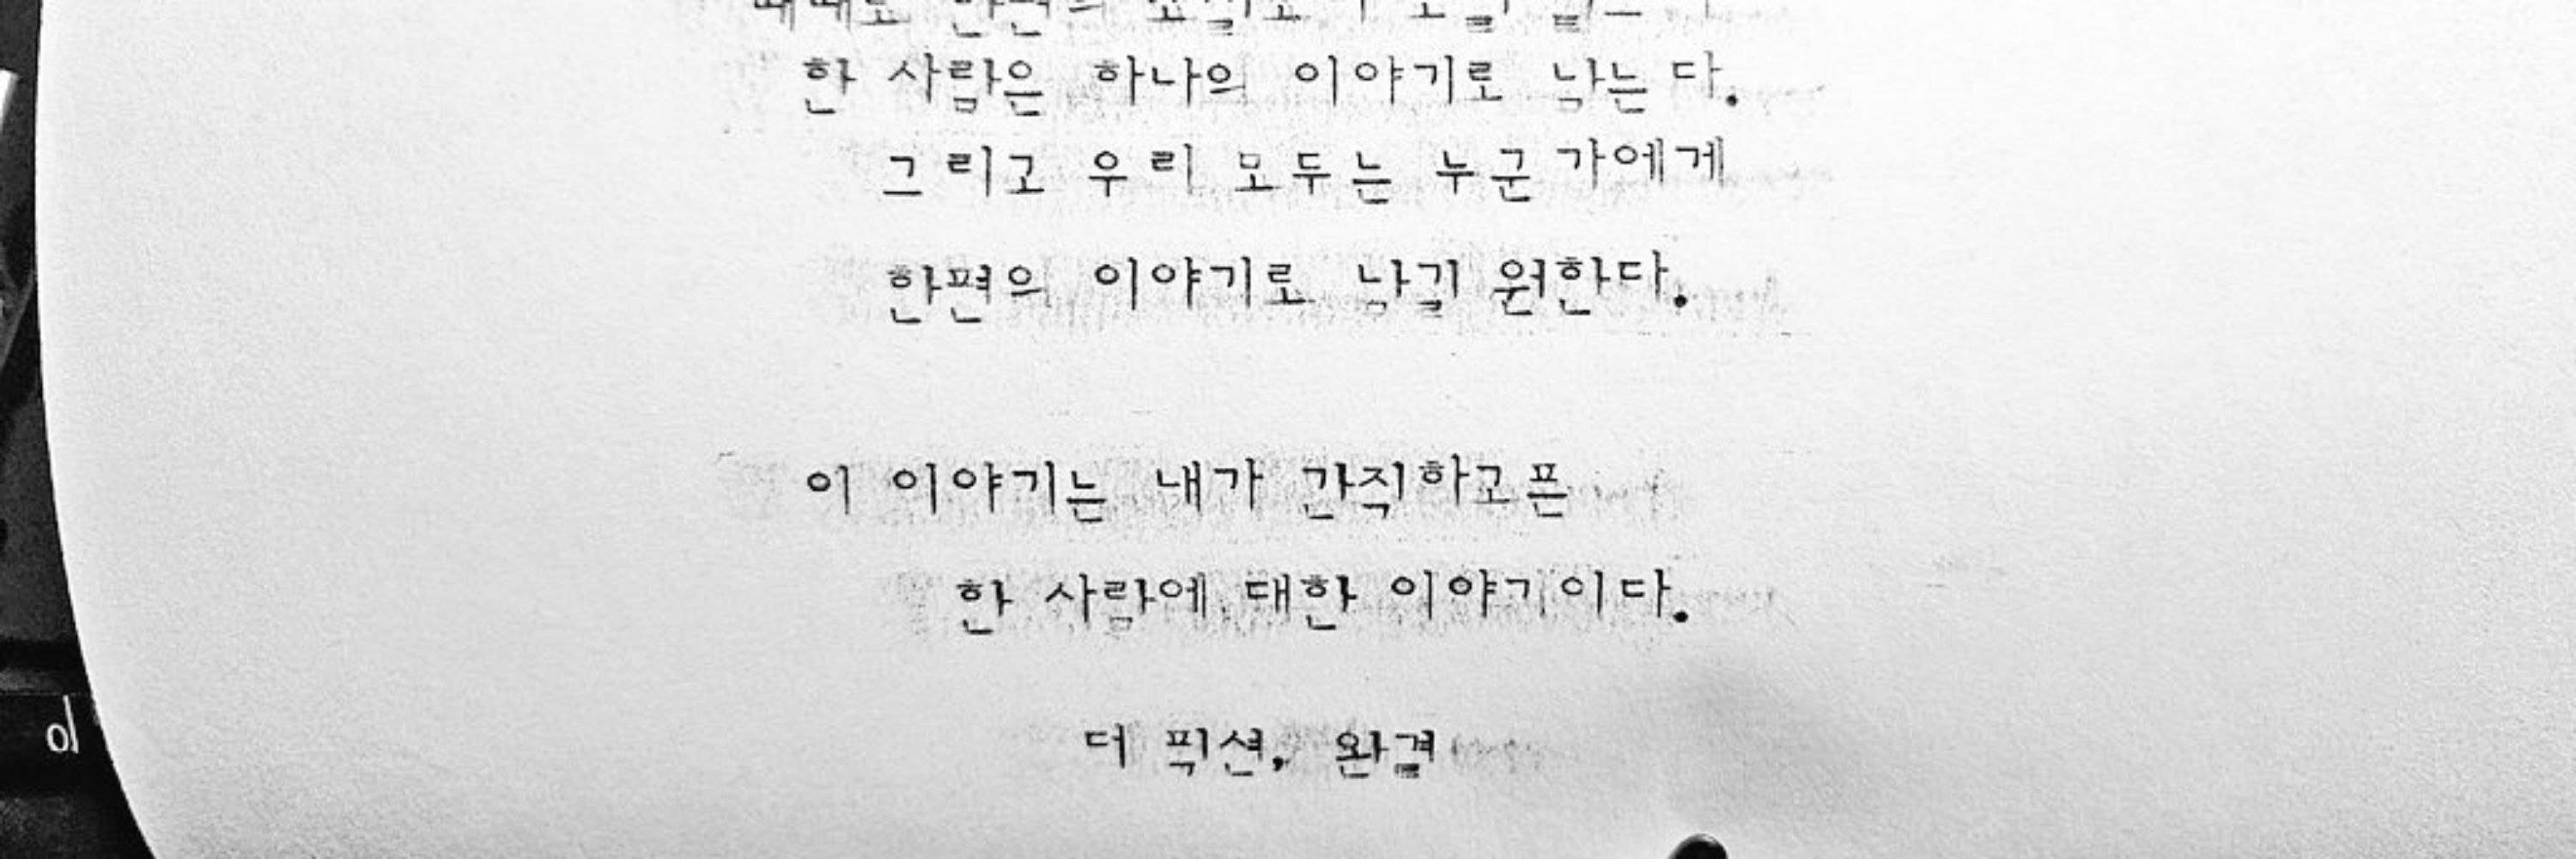 때때로 한편의
한 사람은 하나의 이야기로 남는다.
그리고 우리 모두는 누군가에게
한편의 이야기로 남길 원한다.
이 이야기는 내가 간직하고픈
한 사람에 대한 이야기이다.
더 픽션, 완결
이